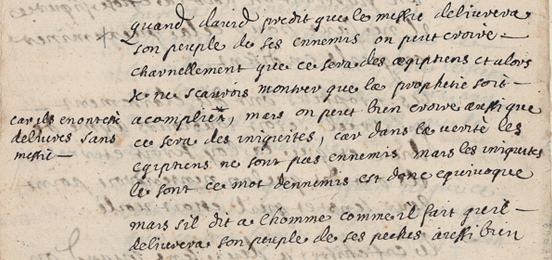 quand david predit que le messie deliurera
son peuple de ses ennemis on peut croire
charnellement que ce sera des ægiptiens et alors
Je ne scaurois montrer que la prophetie soit
acomplie, mais on peut bien croire aussi que
ce sera des iniquites, car dans la verité les
egiptiens ne sont pas ennemis mais les iniquites
le sont ce mot dennemis est donc equiuoque
mais sil dit a lhomme comme il fait quil
deliurera son peuple de ses peches aussi bien
car ils en ont esté
deliures sans
messie